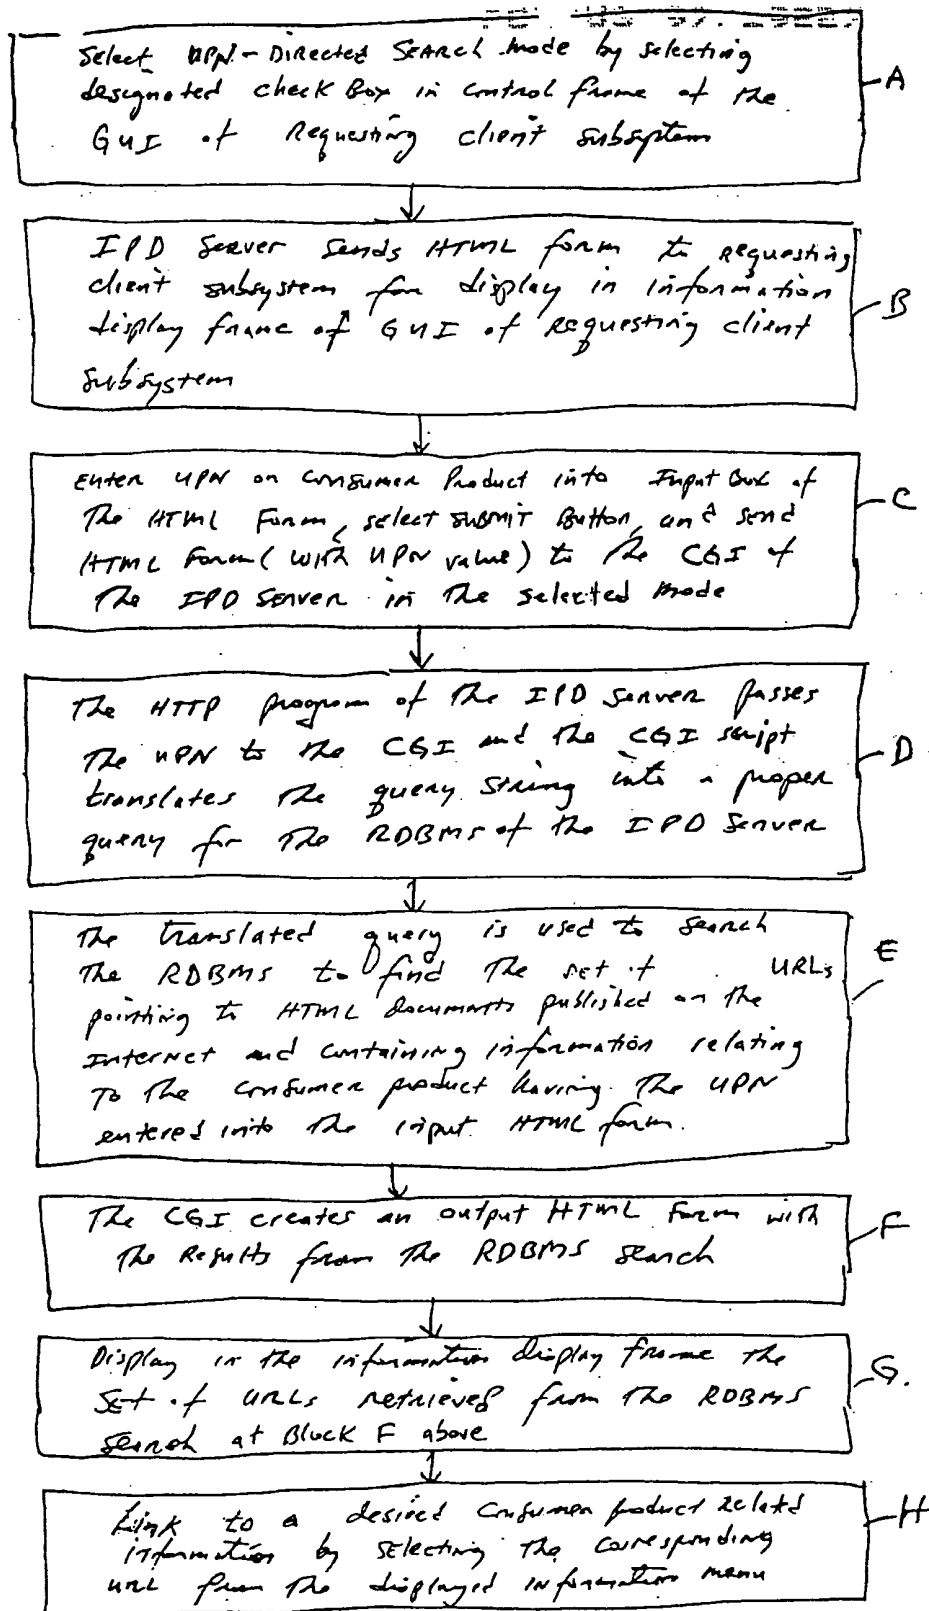 Select UPN-Directed Search mode by selecting
designated check Box in control frame of the
GUI of Requesting client subsystem
A
IPD Server sends HTML form to requesting
client subsystem for display in information
display frame of GUI of Requesting client
subsystem
B
Enter UPN on Consumer Product into Input Box of
The HTML Form, select SUBMIT Button, and send
HTML Form (with UPN value) to the CGI of
The IPD Server in the selected mode
C
The HTTP program of the IPD Server passes
The UPN to the CGI and the CGI script
translates the query string into a proper
query for the RDBMS of the IPD Server
D
The translated query is used to search
The RDBMS to find the set of URLs
pointing to HTML documents published on the
Internet and containing information relating
To the consumer product having the UPN
entered into the input HTML form.
E
The CGI creates an output HTML Form with
The Results from the RDBMS search
F
Display in the information display frame the
Set of URLs retrieved from the RDBMS
Search at Block F above
G.
Link to a desired consumer product related
information by selecting the corresponding
URL from the displayed information menu
H